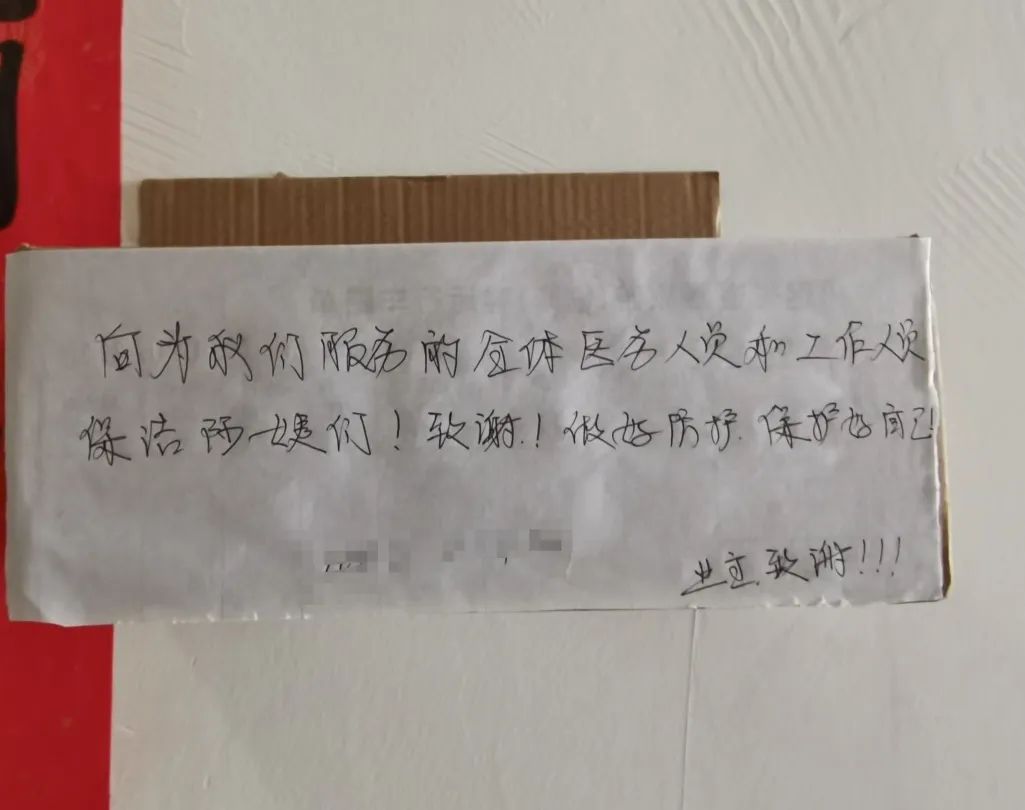 向为我们服务的全体医务人员和工作人员
保洁阿姨们！致谢！做好防护.保护好自己！
业主.致谢！！！